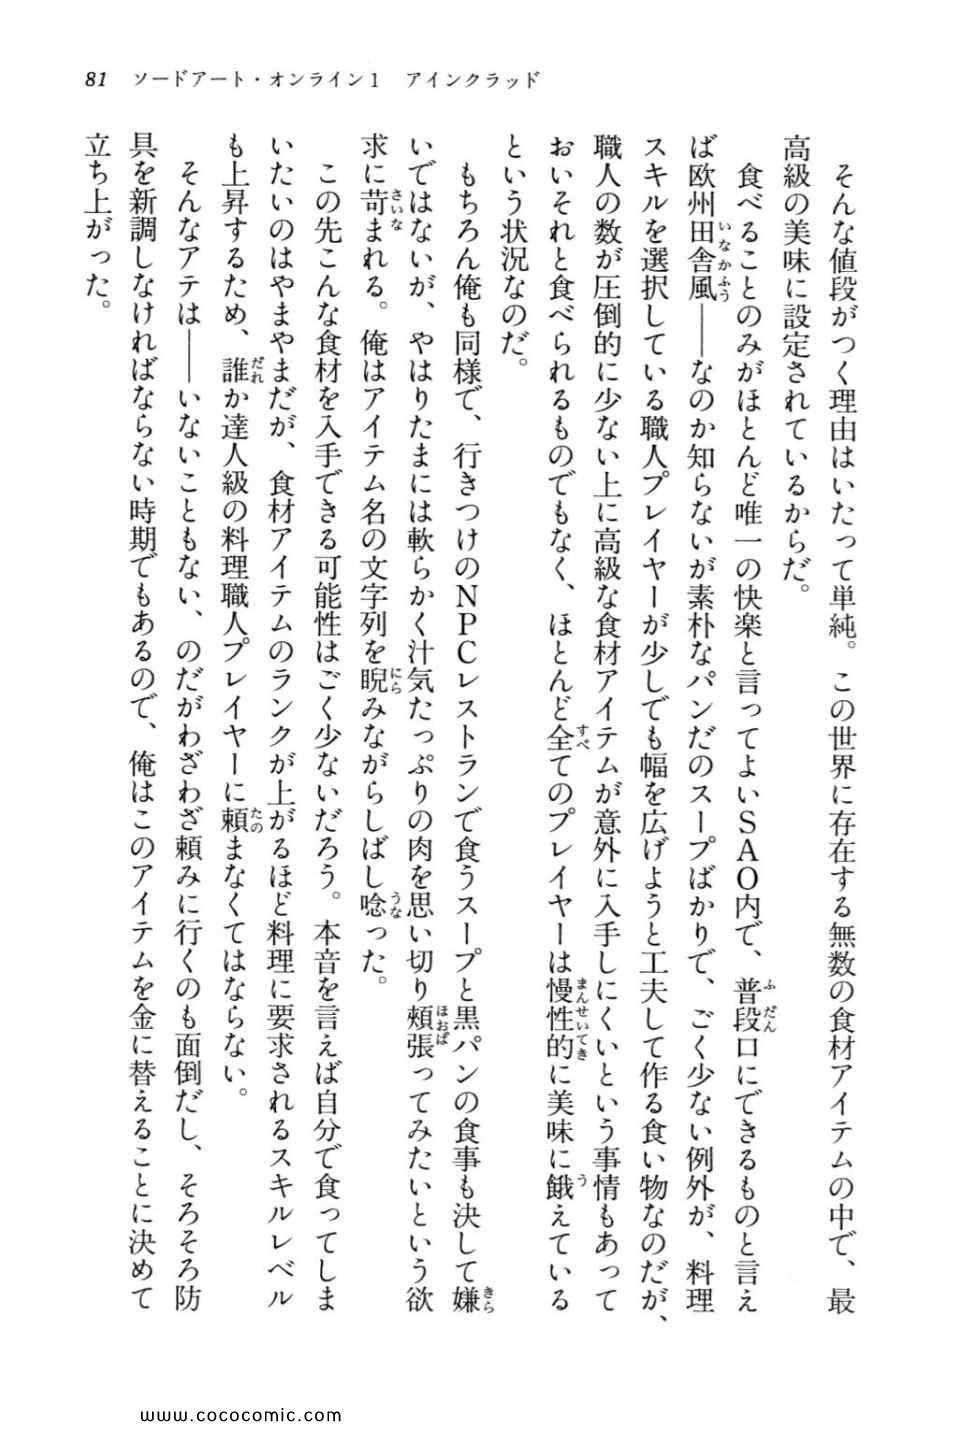 81　ソードアート・オンライン1　アインクラッド
　そんな値段がつく理由はいたって単純。この世界に存在する無数の食材アイテムの中で、最
高級の美味に設定されているからだ。
　食べることのみがほとんど唯一の快楽と言ってよいSAO内で、普段口にできるものと言え
ば欧州田舎風――なのか知らないが素朴なパンだのスープばかりで、ごく少ない例外が、料理
スキルを選択している職人プレイヤーが少しでも幅を広げようと工夫して作る食い物なのだが、
職人の数が圧倒的に少ない上に高級な食材アイテムが意外に入手しにくいという事情もあって
おいそれと食べられるものでもなく、ほとんど全てのプレイヤーは慢性的に美味に餓えている
という状況なのだ。
　もちろん俺も同様で、行きつけのNPCレストランで食うスープと黒パンの食事も決して嫌
いではないが、やはりたまには軟らかく汁気たっぷりの肉を思い切り頬張ってみたいという欲
求に苛まれる。俺はアイテム名の文字列を睨みながらしばし唸った。
　この先こんな食材を入手できる可能性はごく少ないだろう。本音を言えば自分で食ってしま
いたいのはやまやまだが、食材アイテムのランクが上がるほど料理に要求されるスキルレベル
も上昇するため、誰か達人級の料理職人プレイヤーに頼まなくてはならない。
　そんなアテは――いないこともない、のだがわざわざ頼みに行くのも面倒だし、そろそろ防
具を新調しなければならない時期でもあるので、俺はこのアイテムを金に替えることに決めて
立ち上がった。
www.cococomic.com